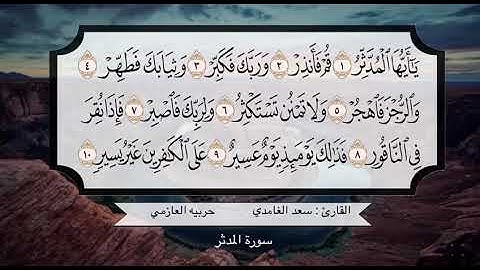 يَٰٓأَيُّهَا ٱلْمُدَّثِّرُ ١ قُمْ فَأَنذِرْ ٢ وَرَبَّكَ فَكَبِّرْ ٣ وَثِيَابَكَ فَطَهِّرْ ٤
وَٱلرُّجْزَ فَٱهْجُرْ ٥ وَلَا تَمْنُن تَسْتَكْثِرُ ٦ وَلِرَبِّكَ فَٱصْبِرْ ٧ فَإِذَا نُقِرَ
فِى ٱلنَّاقُورِ ٨ فَذَٰلِكَ يَوْمَئِذٍ يَوْمٌ عَسِيرٌ ٩ عَلَى ٱلْكَٰفِرِينَ غَيْرُ يَسِيرٍ ١٠
القارئ : سعد الغامدي حربيه العازمي
سورة المدثر